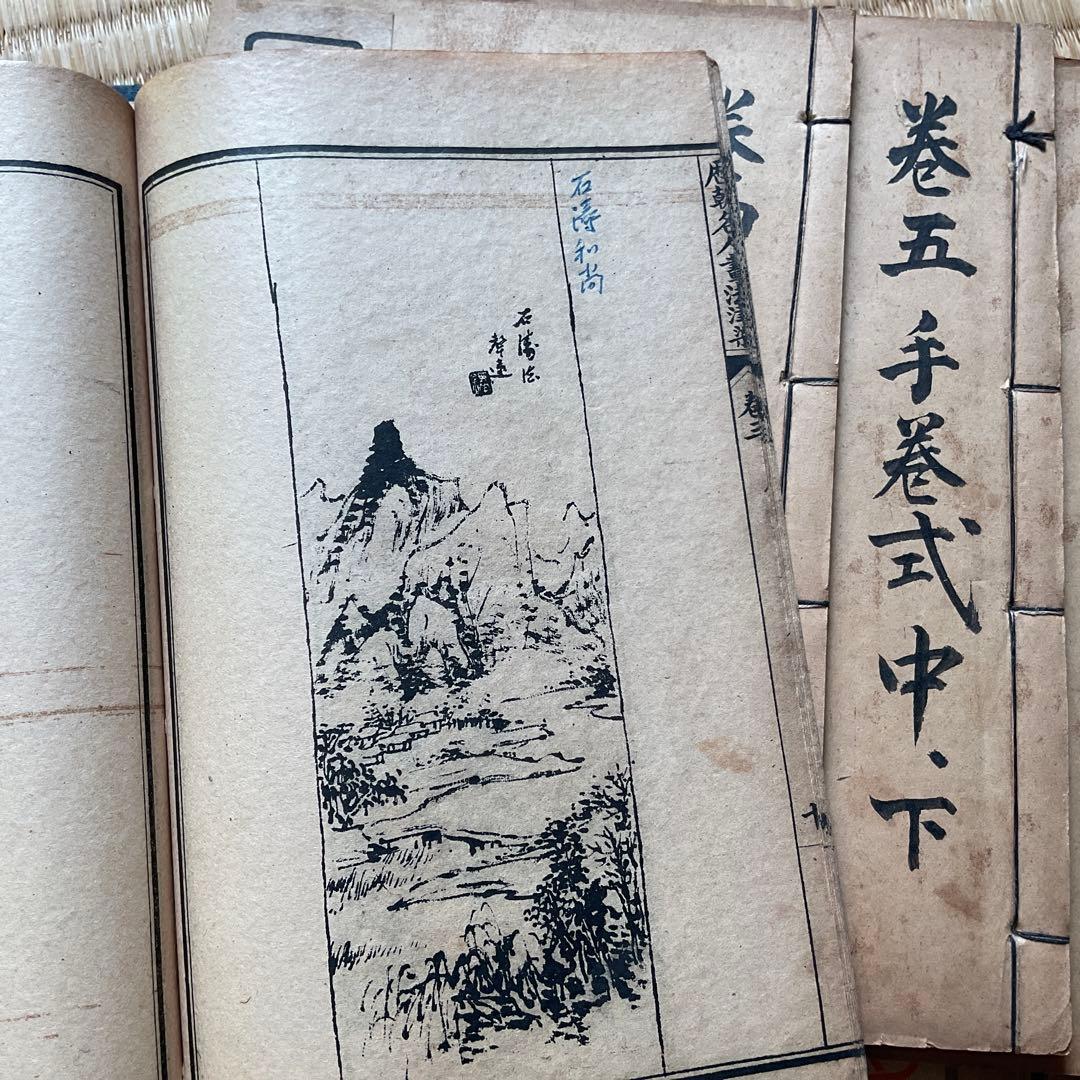 卷五手卷式中、下
歷朝名人畫法津梁
卷三
石濤和尚
石濤
聲遠